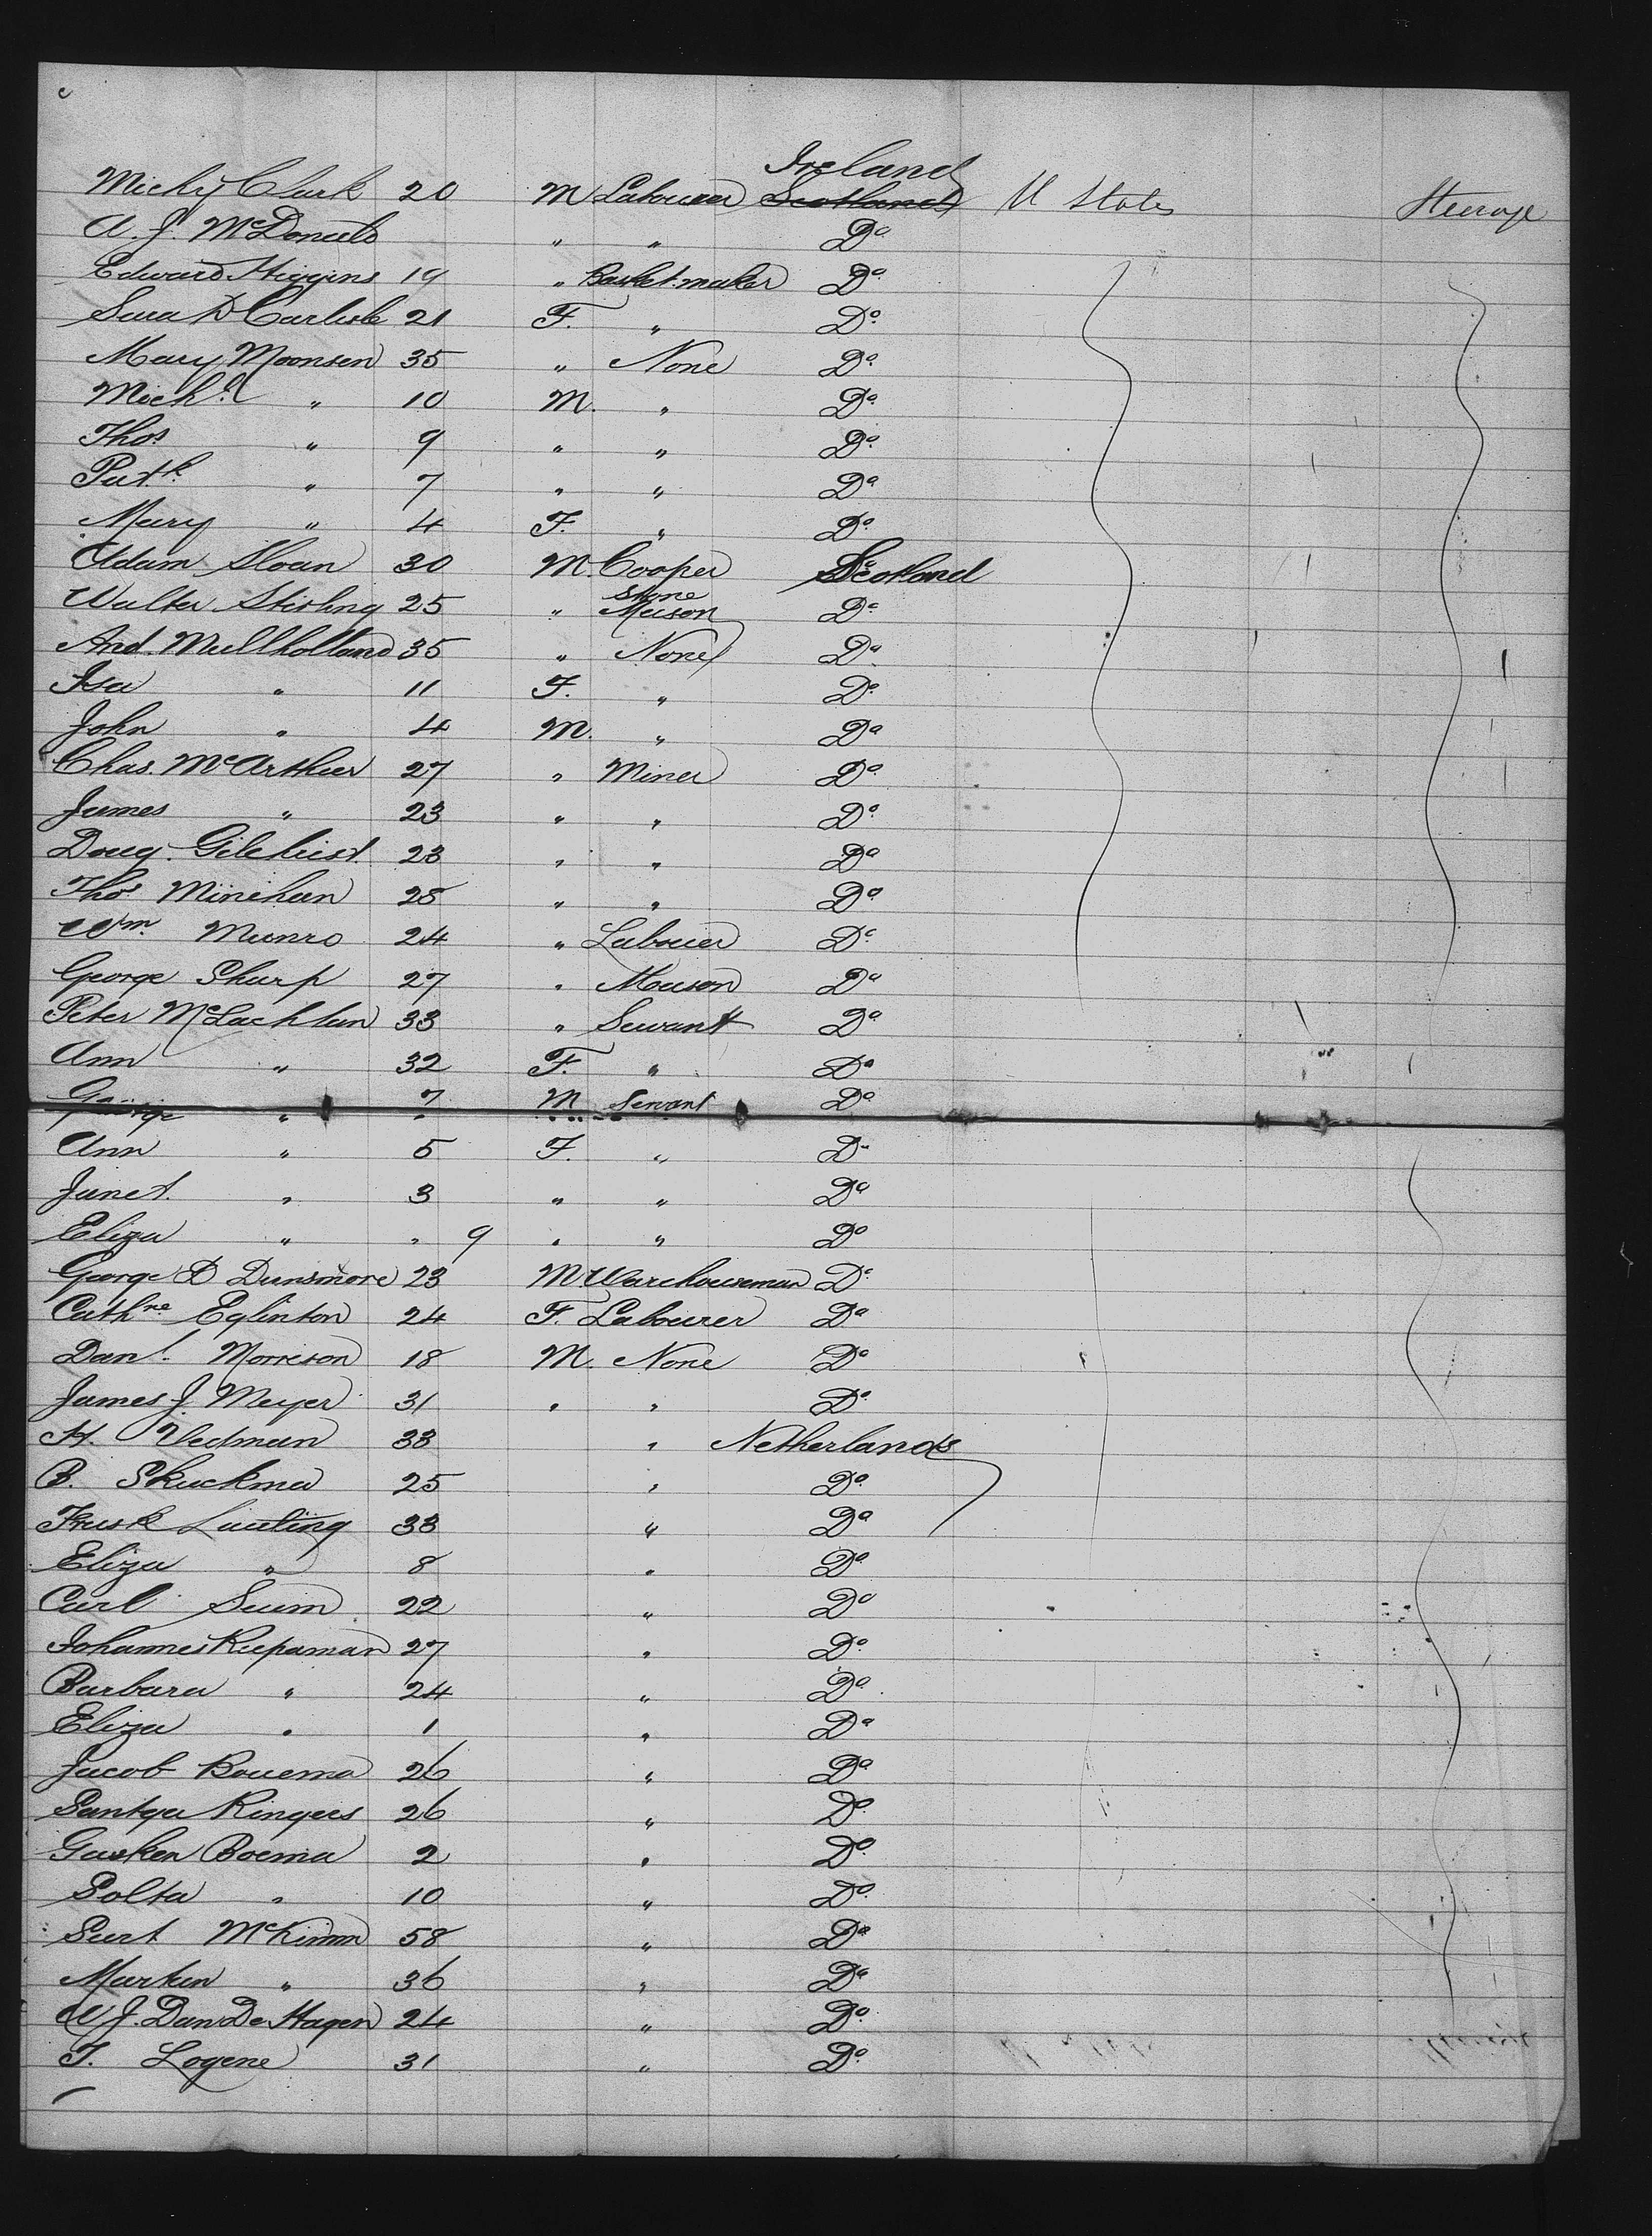 Ireland
Michy Clark 20 M Labourer Scotland U States Steerage
A. J. McDonald " " Do
Edward Higgins 19 " Basket maker Do
Sarah Carlisle 21 F. " Do
Mary Moonsen 35 " None Do
Michl " 10 M. " Do
Thos " 9 " " Do
Patk " 7 " " Do
Mary " 4 F. " Do
Adam Sloan 30 M. Cooper Scotland
Walter Stirling 25 " Stone Mason Do
And. Mullholland 35 " None Do
Isa " 11 F. " Do
John " 4 M. " Do
Chas. McArthur 27 " Miner Do
James " 23 " " Do
Doug. Gilchrist 23 " " Do
Thos Minehan 28 " " Do
Wm Munro 24 " Labourer Do
George Sharp 27 " Mason Do
Peter McLachlan 33 " Servant Do
Ann " 32 F. " Do
George " 7 M Servant Do
Ann " 5 F. " Do
Janet " 3 " " Do
Eliza " " 9 " " Do
George D Dunsmore 23 M Warehouseman Do
Cathne Eglinton 24 F. Labourer Do
Danl Morrison 18 M. None Do
James J. Meyer 31 " " Do
H. Vedman 33 " Netherlands
B. Skuckma 25 " Do
33 " Do
Eliza " 8 " Do
Carl 22 " Do
Johannes Riepaman 27 " Do
Barbara " 24 " Do
Eliza " 1 " Do
Jacob Bouema 26 " Do
Santga Ringers 26 " Do
Gasken Boema 2 " Do
Solta " 10 " Do
McKimm 58 " Do
Martan " 36 " Do
W J. Dan De Hagen 24 " Do
T. Logene 31 " Do